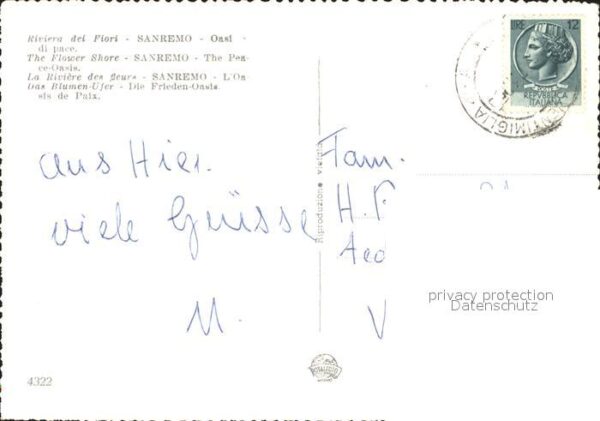 Riviera dei Fiori - SANREMO - Oasi
di pace.
The Flower Shore - SANREMO - The Pea-
ce-Oasis.
La Rivière des fleurs - SANREMO - L'Oa
Das Blumen-Ufer - Die Frieden-Oasis.
sis de Paix.
LIRE 12
POSTE
REPVBBLICA
ITALIANA
VENTIMIGLIA
aus Hier.
viele Grüsse
M.
Fam.
H. F
V
Riproduzione vietata
privacy protection
Datenschutz
4322